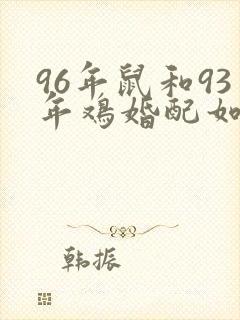 96年鼠和93
年鸡婚配如
韩振